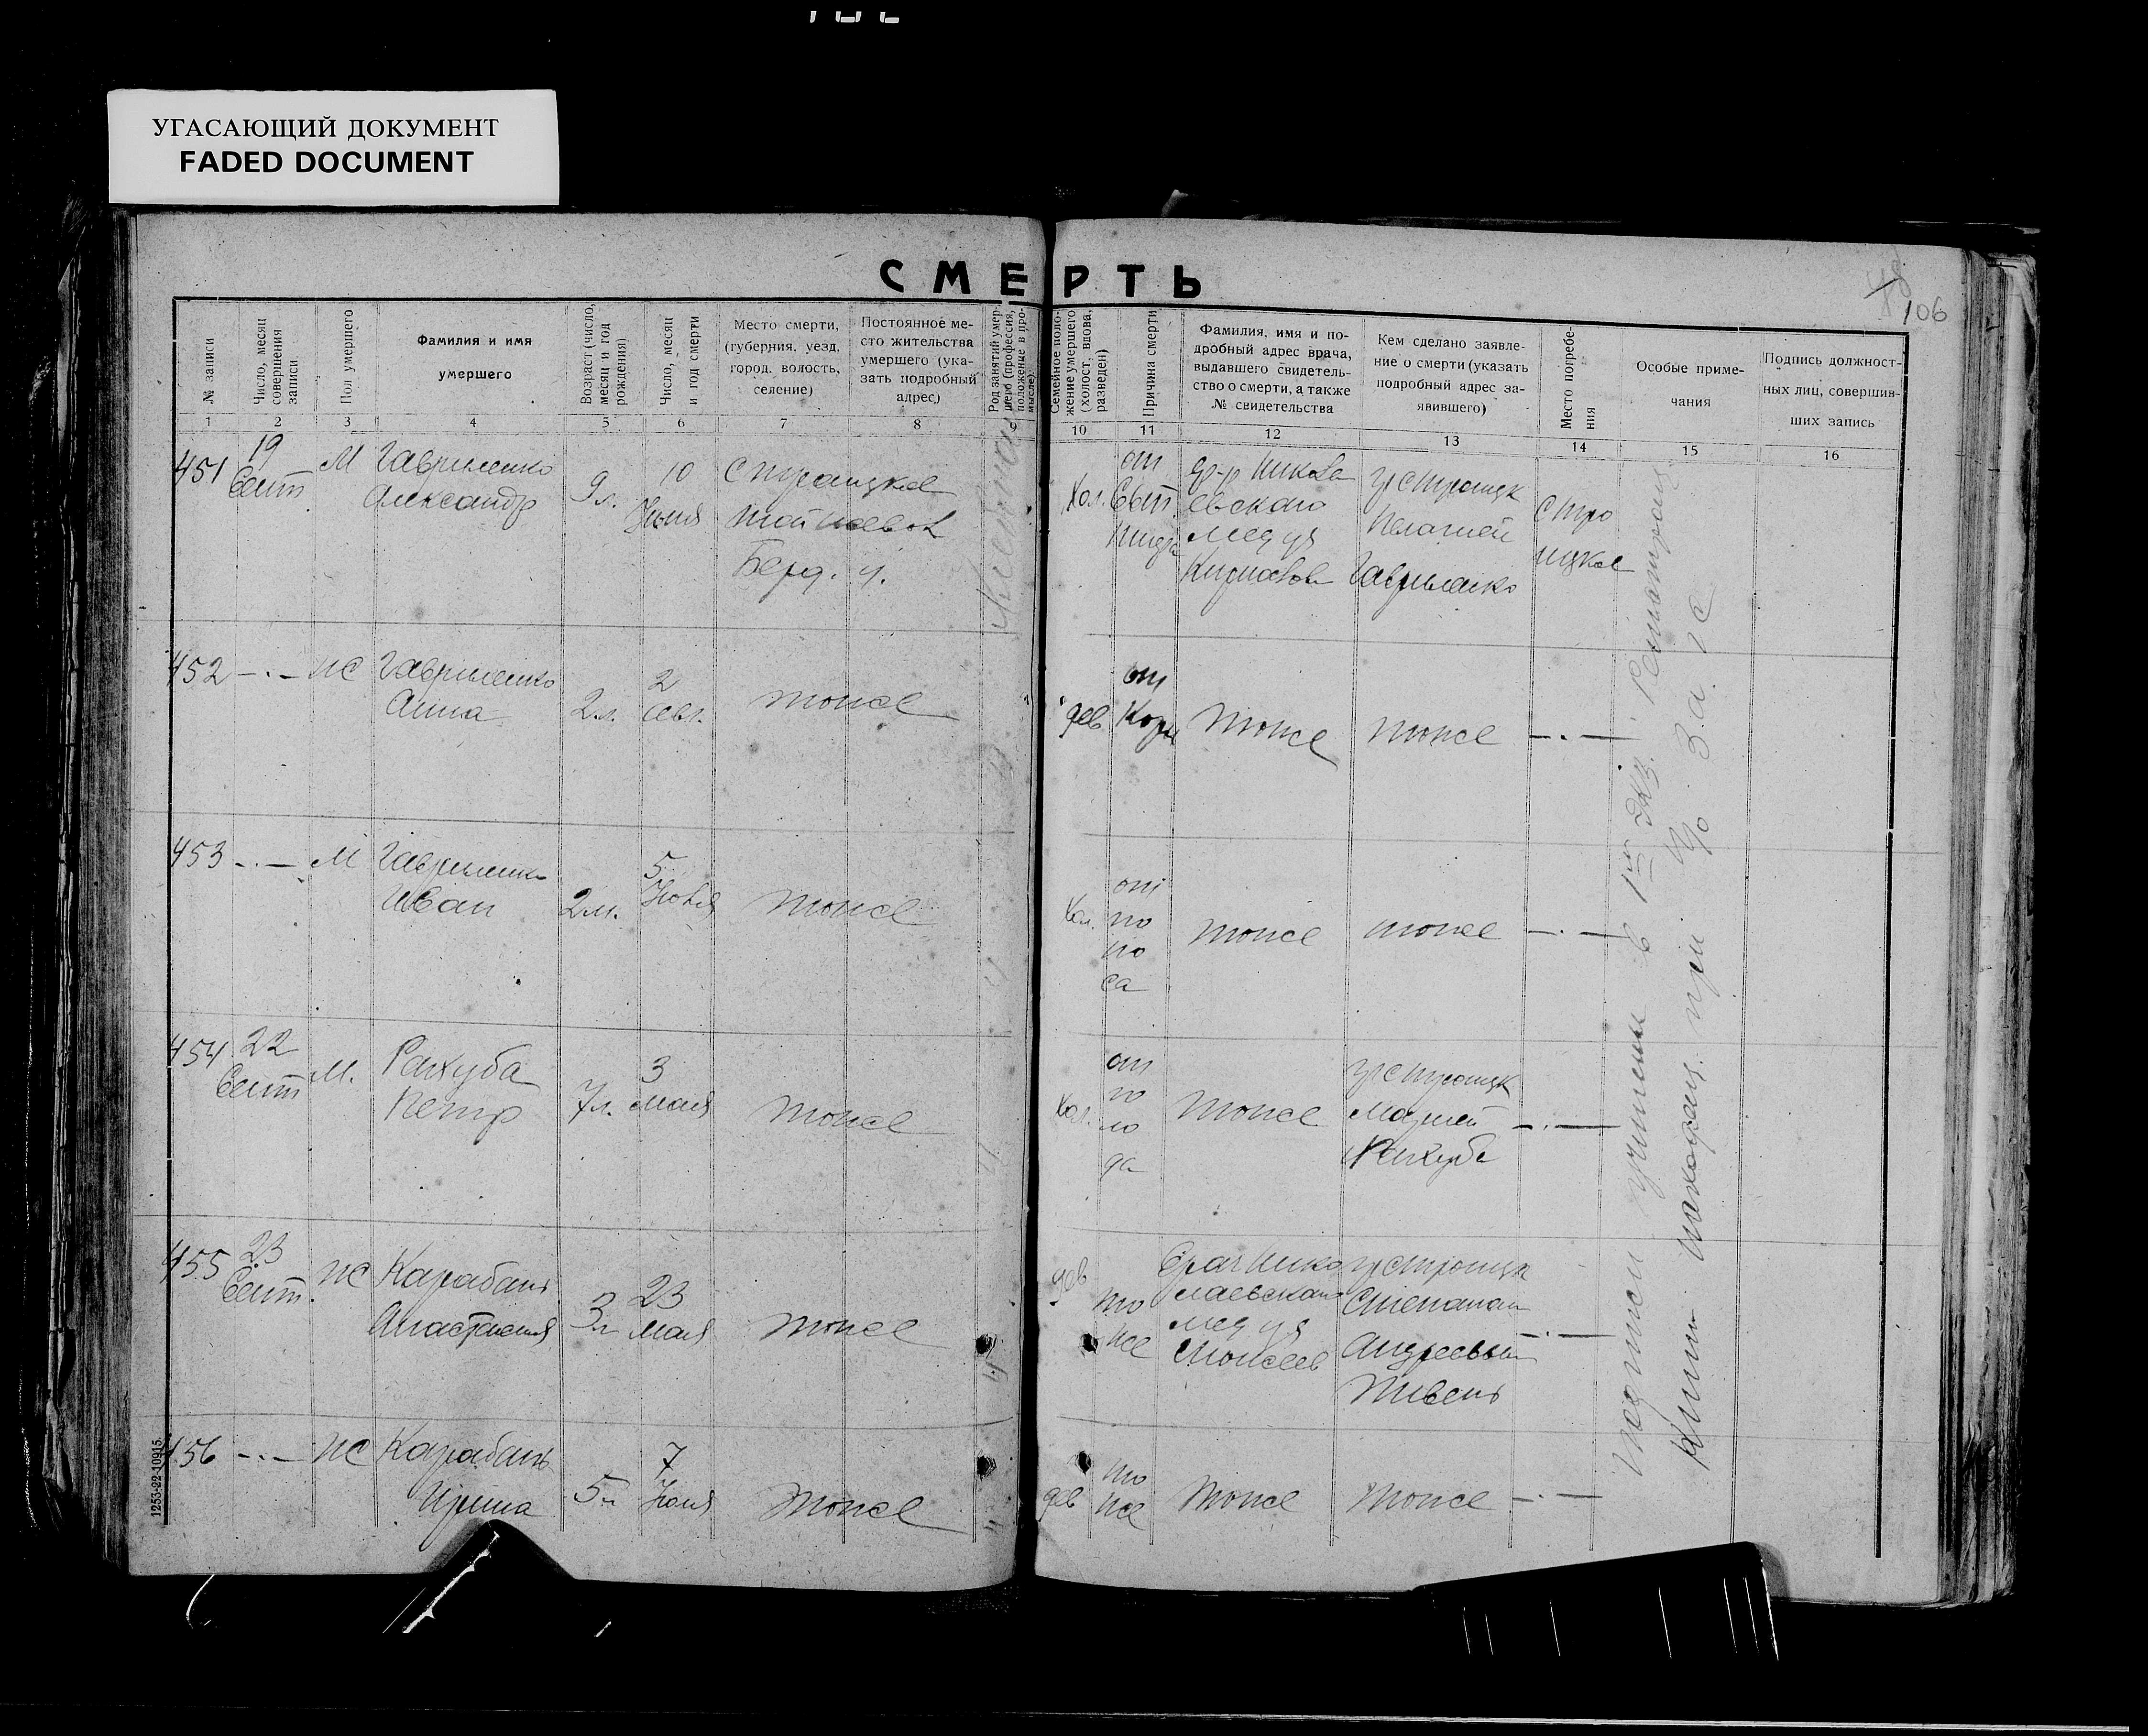 УГАСАЮЩИЙ ДОКУМЕНТ
FADED DOCUMENT
СМЕРТЬ
106
№ записи
Число, месяц совершения записи
Пол умершего
Фамилия и имя
умершего
Возраст (число, месяц и год рождения)
Число, месяц и год смерти
Место смерти,
(губерния, уезд,
город, волость,
селение)
Постоянное ме-
сто жительства
умершего (ука-
зать подробный
адрес)
Род занятий умер-
шего (профессия,
положение в про-
мысле)
Семейное поло-
жение умершего
(холост, вдова,
разведен)
Причина смерти
Фамилия, имя и по-
дробный адрес врача,
выдавшего свидетель-
ство о смерти, а также
№ свидетельства
Кем сделано заявле-
ние о смерти (указать
подробный адрес за-
явившего)
Место погребе-
ния
Особые приме-
чания
Подпись должност-
ных лиц, совершив-
ших запись
1 2 3 4 5 6 7 8 9 10 11 12 13 14 15 16
451
19
Сент
М
Гавриленко
Александр
9 л.
10
Июня
С Троицкое
Берд. у.
Хол.
от
др-р Никола
евского
мед уч
гр с Троицк
Пелагией
Гавриленко
С Тро
ицкое
452 -.- ж
Гавриленко
Анна
2 л.
2
Авг.
тоже
дев
от
тоже
тоже
-.-
453 -.- М
Гавриленко
Иван
2 м.
5
Июня
тоже
Хол.
от
по
но
са
тоже
тоже
-.-
454
22
Сент
М.
Рахуба
Петр
7 л.
3
мая
тоже
Хол.
от
го
ло
да
тоже
гр с Троицк
Марией
Рахуба
-.-
455
23
Сент
ж
Карабань
Анастасия
3 г
23
мая
тоже
дев
то
же
Врач Нико
лаевскаго
мед уч
Моисеев
гр с Троицк
Степаном
Андреевым
Пивень
-.-
456 -.- ж
Карабань
Ирина
5 л
7
Июня
тоже
дев
то
же
тоже
тоже
-.-
Подписи учинены в 1м Экз. Регистрац
Книги находящ. при
1253-22-10915.